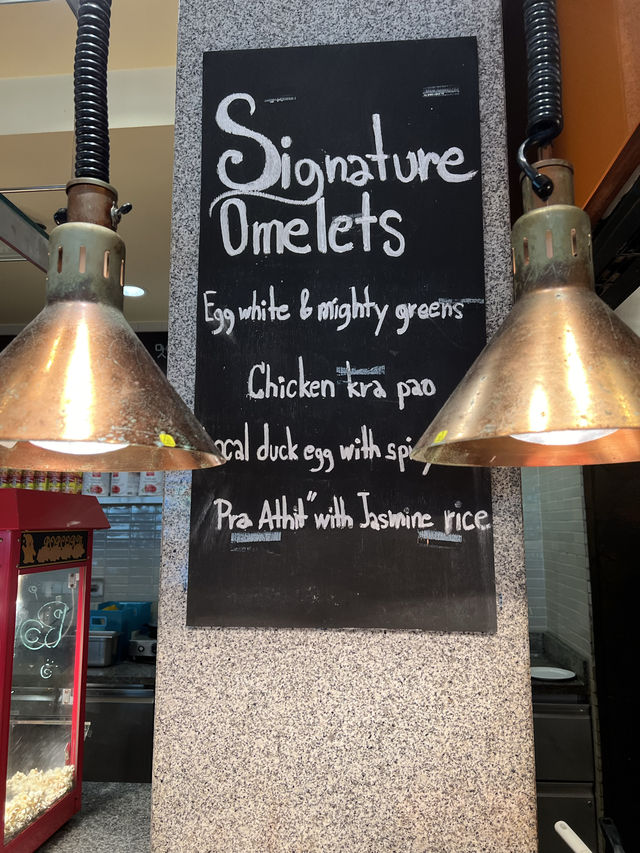 Signature
Omelets
Egg white & mighty greens
Chicken kra pao
ocal duck egg with spi
Pra Athit" with Jasmine rice